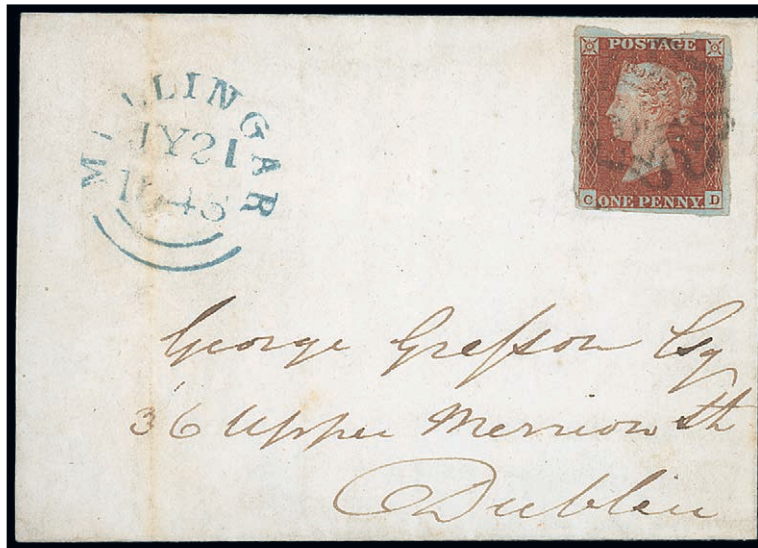 MULLINGAR
JY21
1848
POSTAGE
C D
ONE PENNY.
George Greſson Esq
36 Upper Merrion St
Dublin